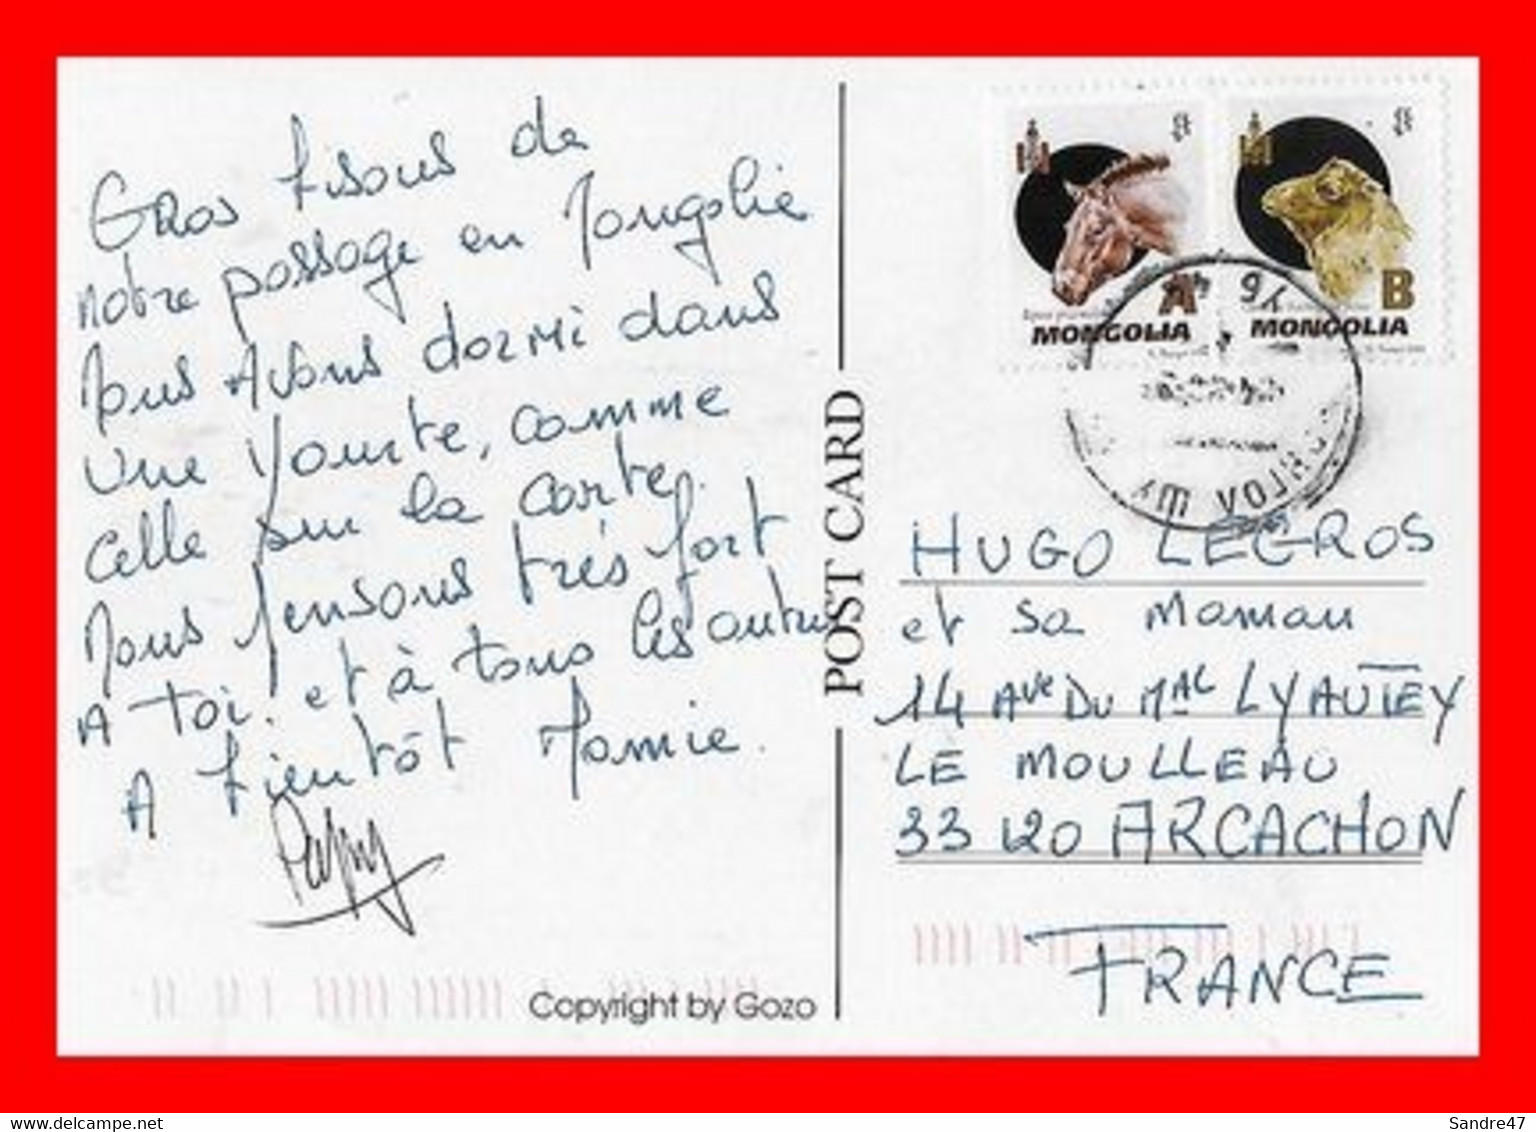 Gros bisous de
notre passage en Mongolie
Nous avons dormi dans
une Yourte, comme
celle sur la carte.
Nous pensons très fort
A toi. et à tous les autres
A bientôt Mamie.
Papy
Copyright by Gozo
POST CARD
A
MONGOLIA
B
MONGOLIA
HUGO LEGROS
et sa maman
14 AVe DU MAL LYAUTEY
LE MOULLEAU
33120 ARCACHON
FRANCE
Sandre47